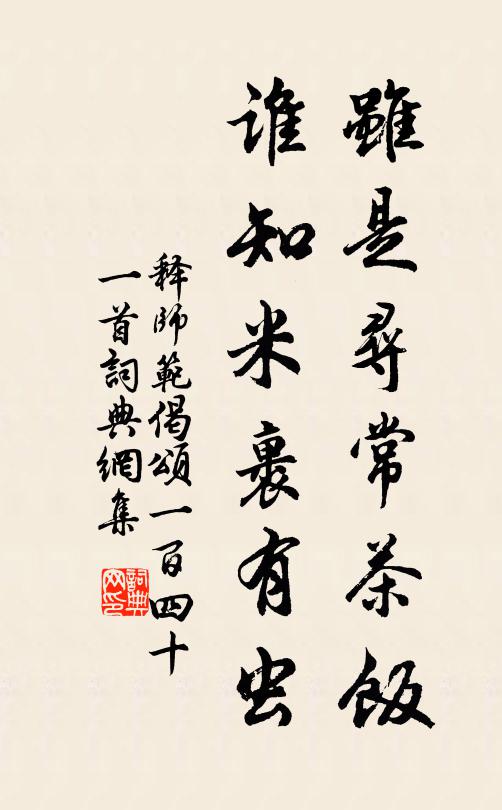 雖是尋常茶飯
谁知米裹有虫
释師範偈頌一百四十
一首詞典網集
詞典網印